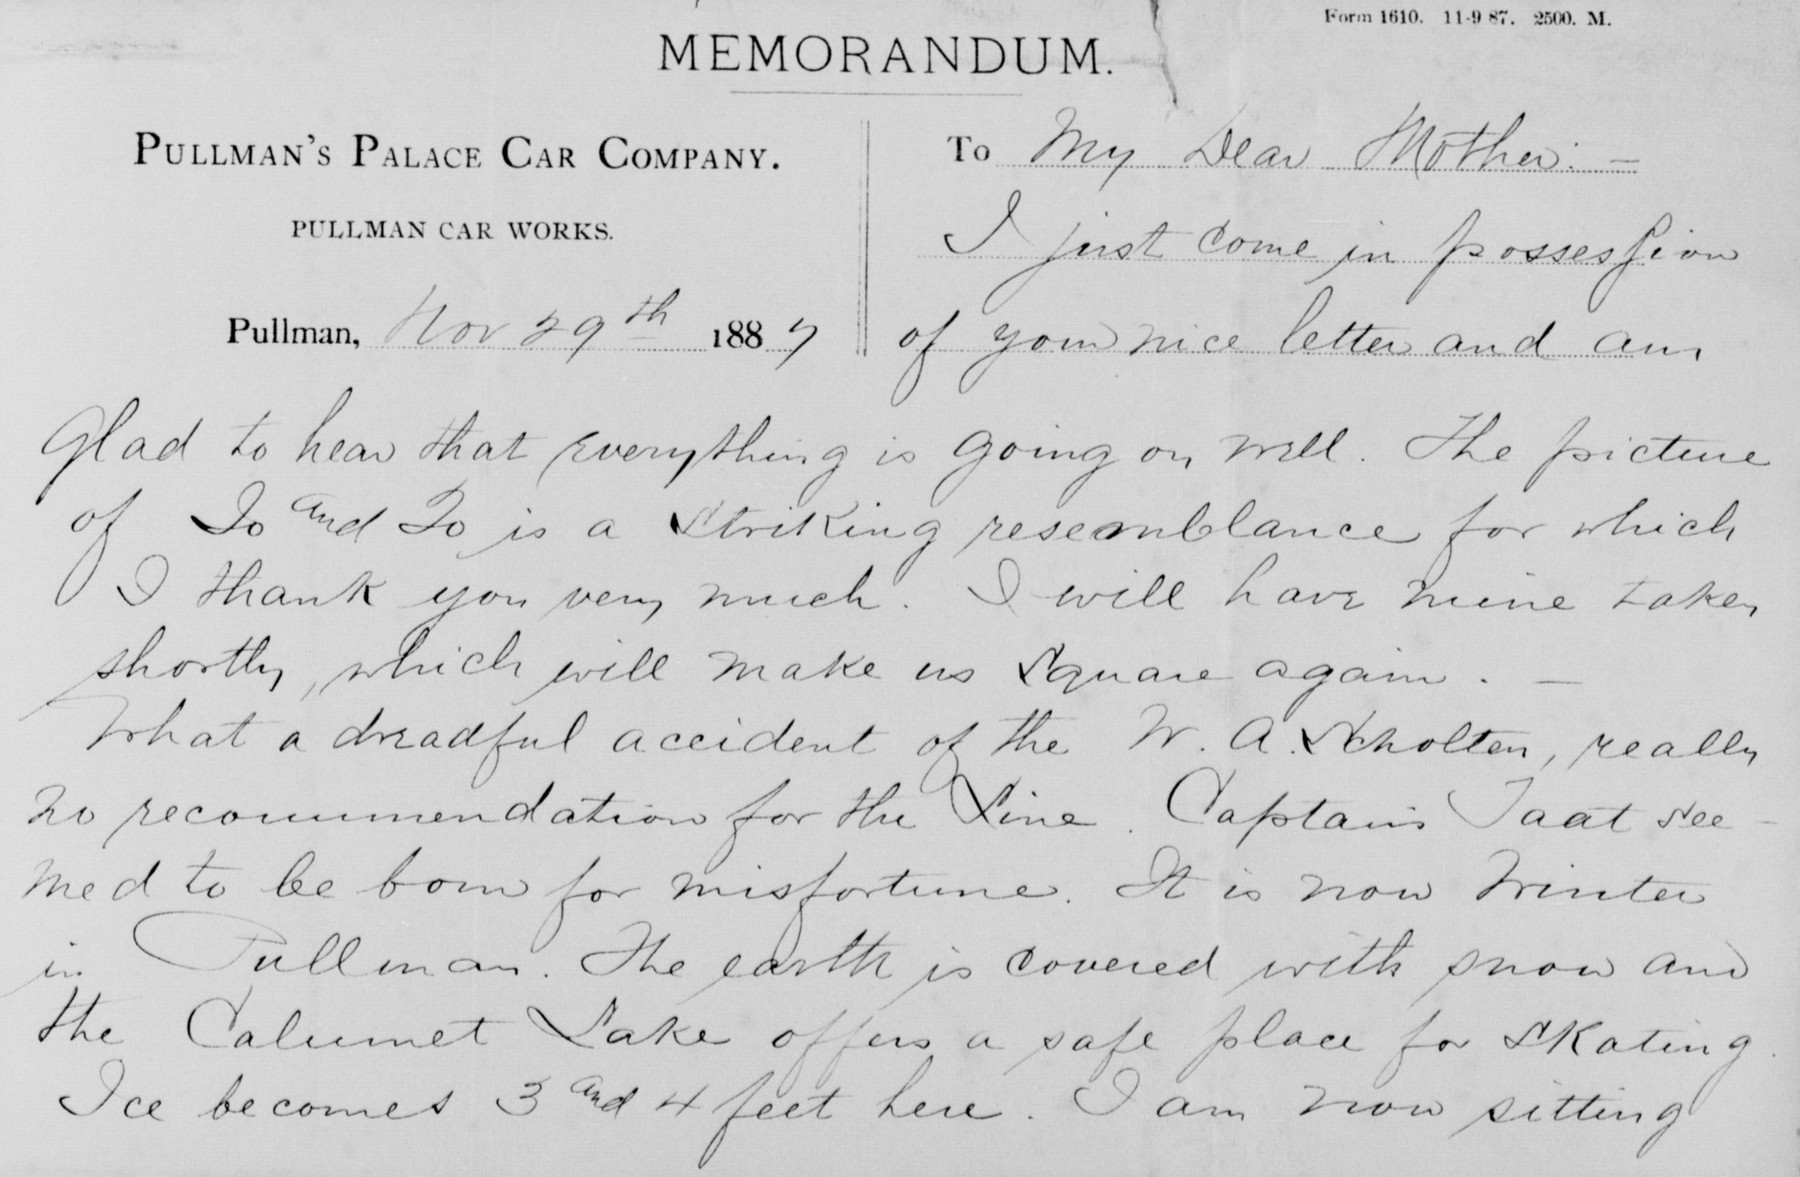 Form 1610. 11-9 87. 2500. M.
MEMORANDUM.
PULLMAN'S PALACE CAR COMPANY.
PULLMAN CAR WORKS.
Pullman, Nov 29th 1887
To My Dear Mother: —
I just come in possession
of your nice letter and am
Glad to hear that everything is going on well. The picture
of Jo and Zo is a striking resemblance for which
I thank you very much. I will have mine taken
shortly, which will make us square again. —
What a dreadful accident of the W. A. Scholten, really
no recommendation for the Line. Captain Taat see-
med to be born for misfortune. It is now Winter
in Pullman. The earth is covered with snow and
the Calumet Lake offers a safe place for skating.
Ice becomes 3 and 4 feet here. I am now sitting